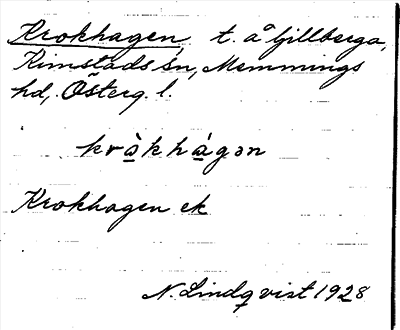 Krokhagen, t. å Gillberga,
Kimstads sn, Memmings
hd, Österg. l.
kràkhágən
Krokhagen ek
N. Lindqvist 1928